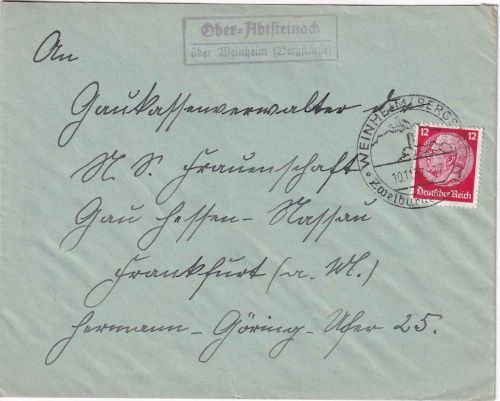 Ober-Abtsteinach
über Weinheim (Bergstraße)
An
Gaukassenverwalter der
N S. Frauenschaft
Gau Hessen-Nassau
Frankfurt (a. M.)
Hermann-Göring-Ufer 25.
WEINHEIM (BERGS
10.11
Zweiburgen
12 12
Deutsches Reich